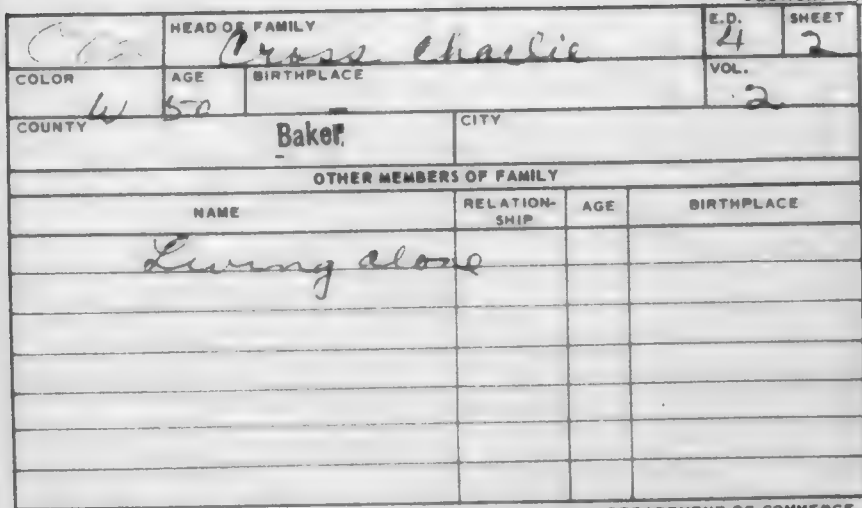 HEAD OF FAMILY E.D. SHEET
Cross Charlie 4 2
COLOR AGE BIRTHPLACE VOL.
W 50 2
COUNTY Baker CITY
OTHER MEMBERS OF FAMILY
NAME RELATION-SHIP AGE BIRTHPLACE
Living alone
DEPARTMENT OF COMMERCE